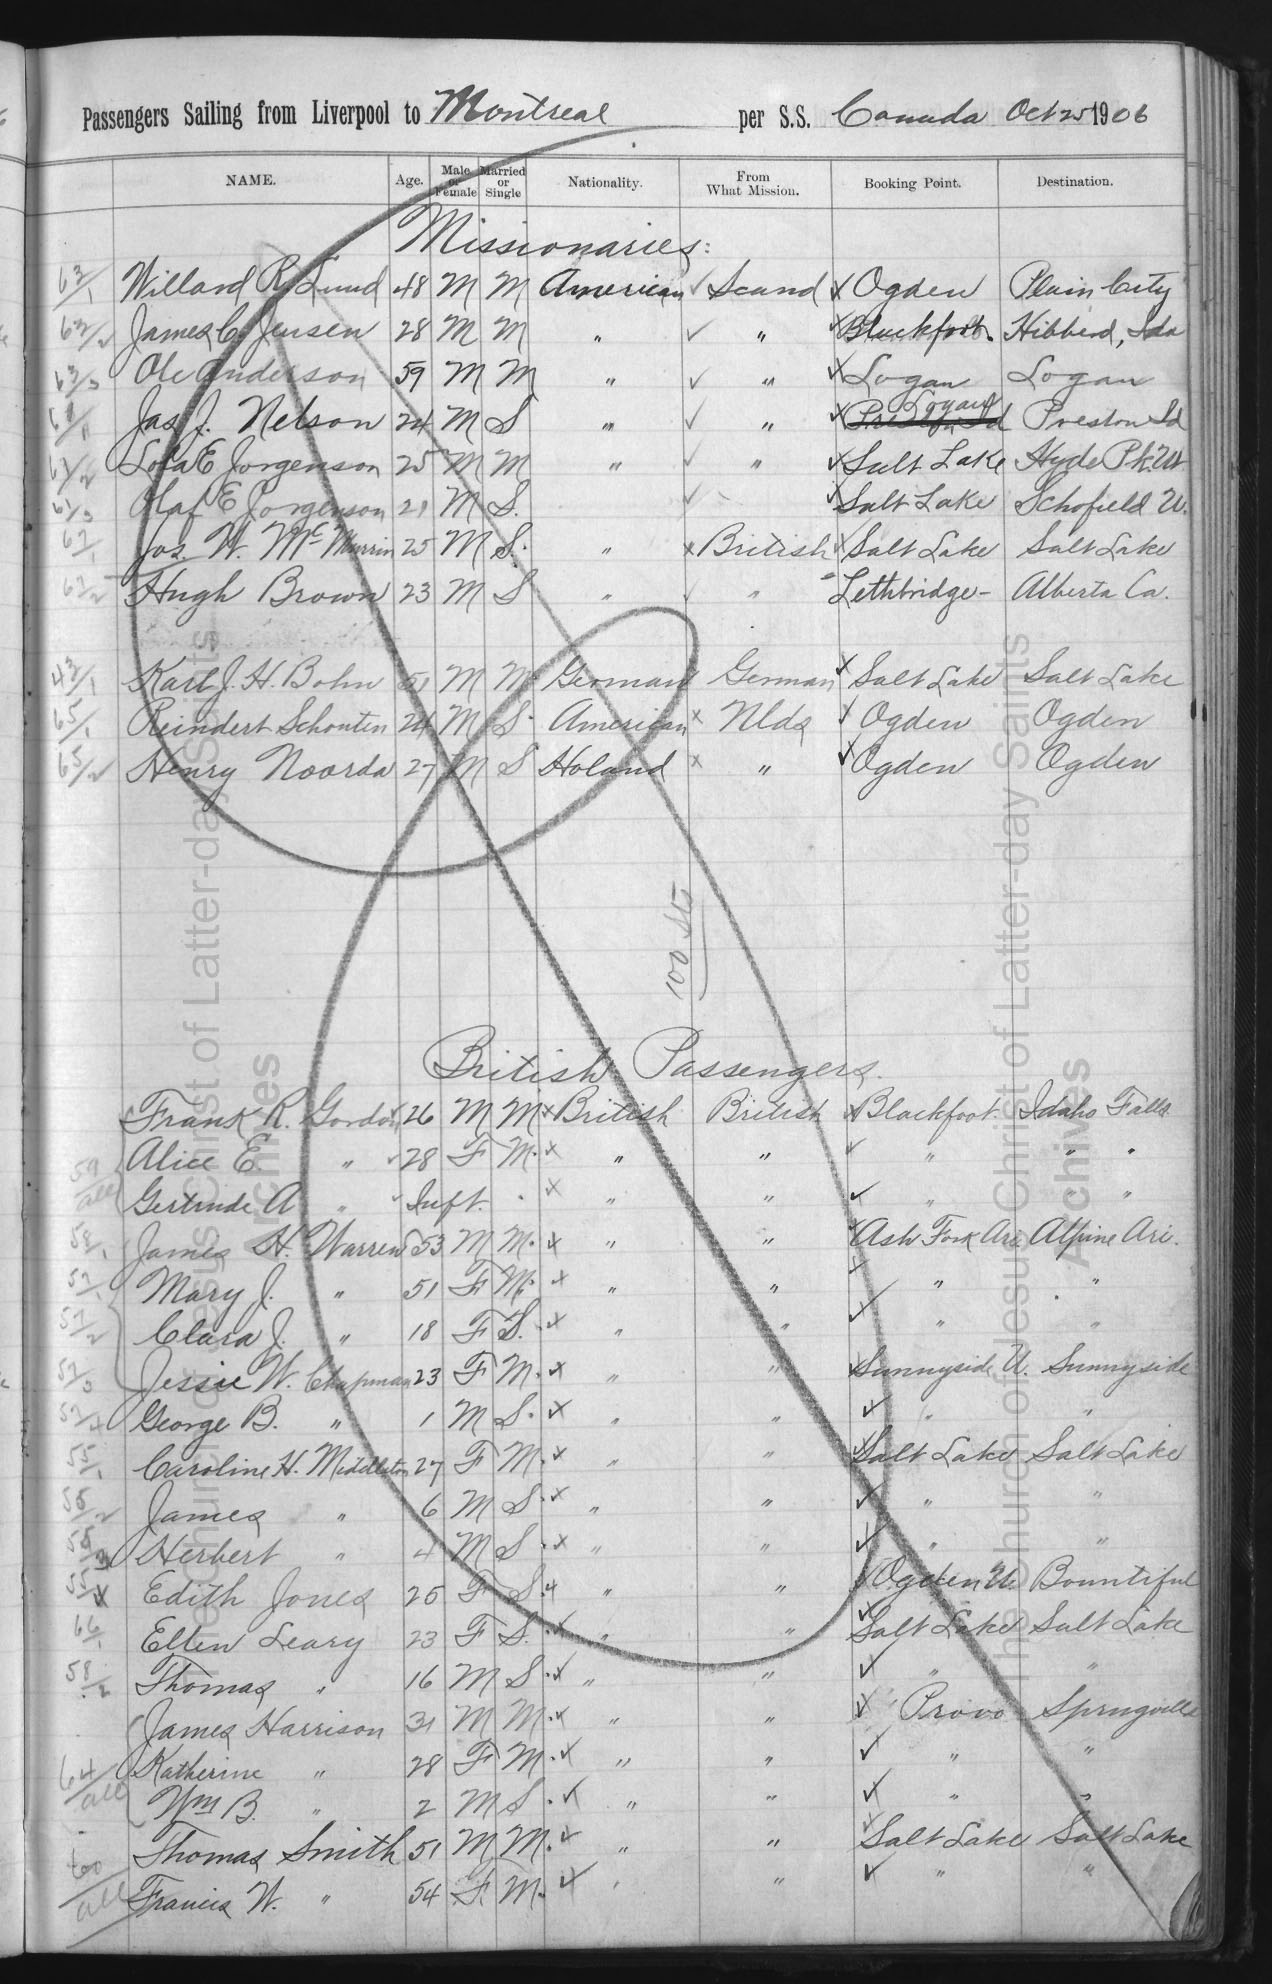 Passengers Sailing from Liverpool to Montreal per S.S. Canada Oct 25 1906
NAME. Age. Male or Female Married or Single Nationality. From What Mission. Booking Point. Destination.
Missionaries:
63/1 Willard R. Lund 48 M M American ✓ Scand ✓ Ogden Plain City
63/2 James C. Jensen 28 M M " ✓ " ✓ Blackfoot. Hibbard, Ida
63/3 Ole Anderson 59 M M " ✓ " ✓ Logan Logan
Logan
61/1 Jas. J. Nelson 24 M S " ✓ " ✓ Preston Id Preston Id
61/2 E Jorgenson 25 M M " ✓ " ✓ Salt Lake Hyde Pk. Ut
61/3 Olaf E Jorgenson 21 M S. ✓ ✓ Salt Lake Schofield U.
67/1 Jos. W. McMurrin 25 M S. " x British ✓ Salt Lake Salt Lake
67/2 Hugh Brown 23 M S " ✓ " Lethbridge - Alberta Ca.
43/1 Karl J. H. Bohn 51 M M. German German x Salt Lake Salt Lake
65/1 Reindert Schouten 24 M S. American x Nlds ✓ Ogden Ogden
65/2 Henry Noorda 27 M S Holand x " ✓ Ogden Ogden
British Passengers.
Frank R. Gordon ✓ 26 M M x British British x Blackfoot. Idaho Falls
59/all Alice E. " ✓ 28 F M. x " " ✓ " " "
Gertrude A " ✓ Inft. . x " " ✓ " " "
James H. Warren 53 M M. x " " ✓ Ash Fork Ari. Alpine Ari.
57/1 Mary J. " 51 F M. x " " ✓ " "
57/2 Clara J. " 18 F S. x " " ✓ " "
57/3 Jessie W. Chapman 23 F M. x " " ✓ Sunnyside U. Sunnyside
57/4 George B. " 1 M S. x " " ✓ " "
55/1 Caroline H. Middleton 27 F M. x " " ✓ Salt Lake Salt Lake
55/2 James " 6 M S. x " " ✓ " "
55/3 Herbert " 4 M S. x " " ✓ " "
Edith Jones 25 F S. x " " ✓ Ogden Ut Bountiful
66/1 Ellen Leary 23 F S. x " " ✓ Salt Lake Salt Lake
58/2 Thomas " 16 M S. x " " ✓ " "
James Harrison 31 M M. x " " ✓ Provo Springville
64/all Katherine " 28 F M. x " " ✓ " "
Wm B. " 2 M S. x " " ✓ " "
Thomas Smith 51 M M. x " " ✓ Salt Lake Salt Lake
60/all Francis W. " 54 F. M. x " " ✓ " "
The Church of Jesus Christ of Latter-day Saints
Archives
The Church of Jesus Christ of Latter-day Saints
Archives